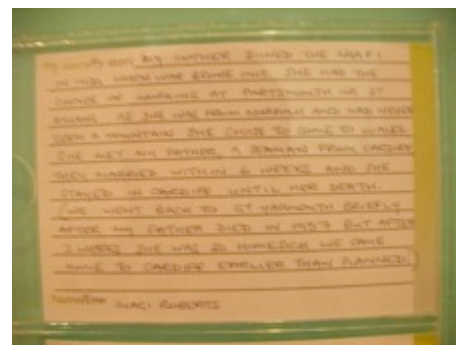 My story/Fy stori: MY MOTHER JOINED THE NAAFI
IN 1939 WHEN WAR BROKE OUT. SHE HAD THE
CHOICE OF WORKING AT PORTSMOUTH OR ST
ATHANS. AS SHE WAS FROM NORFOLK AND HAD NEVER
SEEN A MOUNTAIN SHE CHOSE TO COME TO WALES.
SHE MET MY FATHER, A SEAMAN FROM CARDIFF,
THEY MARRIED WITHIN 6 WEEKS AND SHE
STAYED IN CARDIFF UNTIL HER DEATH.
(WE WENT BACK TO GT YARMOUTH BRIEFLY
AFTER MY FATHER DIED IN 1957 BUT AFTER
2 WEEKS SHE WAS SO HOMESICK WE CAME
HOME TO CARDIFF EARLIER THAN PLANNED.)
Name/Enw ROBERTS